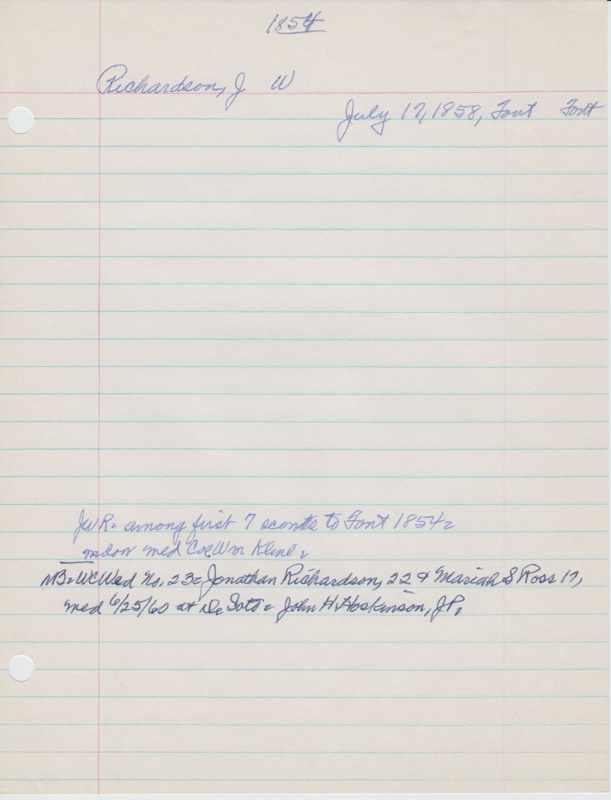 1854
Richardson, J W
July 17, 1858, Font Font
JWR. among first 7 scouts to Font 1854.
med Wm Kline.
NB. WC Wed No. 23. Jonathan Richardson, 22 & Mariah S Ross 17,
med 6/25/60 at De Soto. John H. Hoskinson, JP.